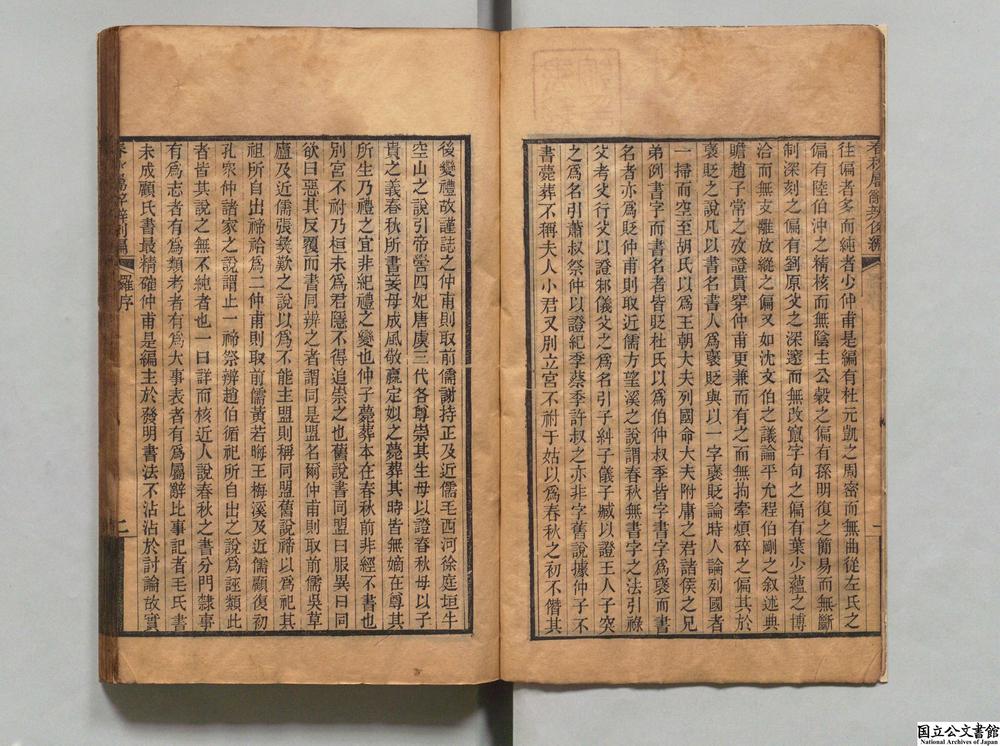 往偏者多而純者少仲甫是編有杜元凱之周密而無曲從左氏之
偏有陸伯沖之精核而無陰主公穀之偏有孫明復之簡易而無斷
制深刻之偏有劉原父之深邃而無改竄字句之偏有葉少蘊之博
洽而無支離放縱之偏又如沈文伯之議論平允程伯剛之叙述典
瞻趙子常之攷證貫穿仲甫更兼而有之而無拘牽煩碎之偏其於
褒貶之說凡以書名書人為褒貶與以一字褒貶論時人論列國者
一掃而空至胡氏以為王朝大夫列國命大夫附庸之君諸侯之兄
弟例書字而書名者皆貶杜氏以為伯仲叔季皆字書字為褒而書
名者亦為貶仲甫則取近儒方望溪之說謂春秋無書字之法引祿
父考父行父以證邾儀父之為名引子糾子儀子臧以證王人子突
之為名引蕭叔祭仲以證紀季蔡季許叔之亦非字舊說據仲子不
書薨葬不稱夫人小君又別立宮不祔于姑以為春秋之初不僭其
後變禮故謹誌之仲甫則取前儒謝持正及近儒毛西河徐庭垣牛
空山之說引帝嚳四妃唐虞三代各尊崇其生母以證春秋母以子
貴之義春秋所書妾母成風敬嬴定姒之薨葬其時皆無嫡在尊其
所生乃禮之宜非紀禮之變也仲子薨葬本在春秋前非經不書也
別宮不祔乃桓未為君隱不得追崇之也舊說書同盟曰服異曰同
欲曰惡其反覆而書同辨之者謂同是盟名爾仲甫則取前儒吳草
廬及近儒張彝歎之說以為不能主盟則稱同盟舊說禘以為祀其
祖所自出禘祫為二仲甫則取前儒黃若晦王梅溪及近儒顧復初
孔眾仲諸家之說謂止一禘祭辨趙伯循祀所自出之說為誣類此
者皆其說之無不純者也一曰詳而核近人說春秋之書分門隸事
有為志者有為類考者有為大事表者有為屬辭比事記者毛氏書
未成顧氏書最精確仲甫是編主於發明書法不沾沾於討論故實
羅序
二
国立公文書館
National Archives of Japan